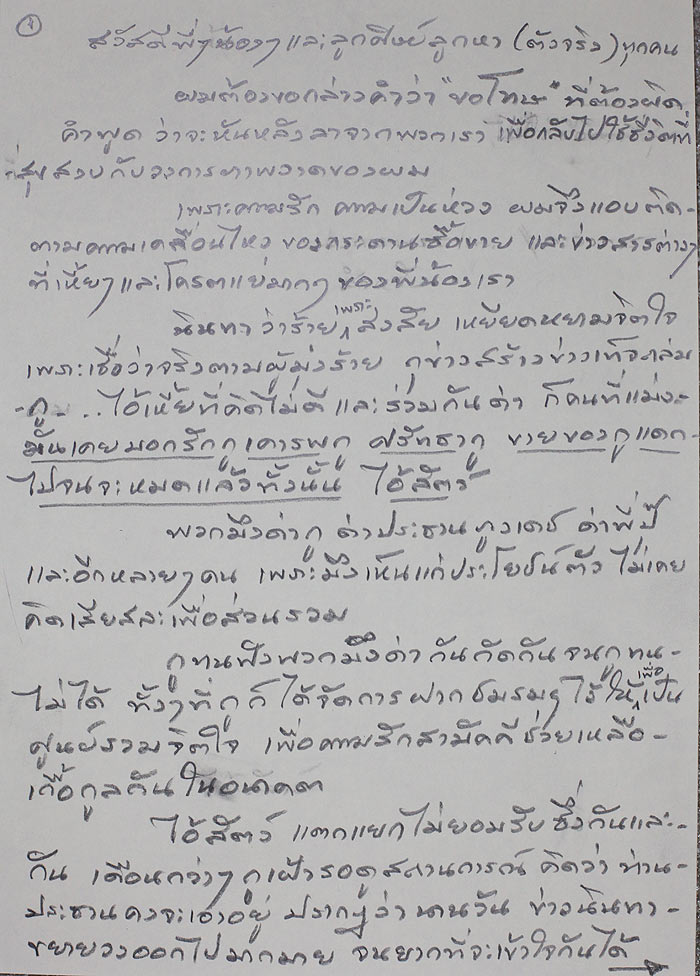 ๑
สวัสดีพี่ๆน้องๆและลูกศิษย์ลูกหา (ตัวจริง) ทุกคน
ผมต้องขอกล่าวคำว่า "ขอโทษ" ที่ต้องผิด
คำพูด ว่าจะหันหลังลาจากพวกเรา เพื่อกลับไปใช้ชีวิตที่
สุขสงบกับวงการ ของผม
เพราะความรัก ความเป็นห่วง ผมจึงแอบติด-
ตามความเคลื่อนไหว ของกระดานซื้อขาย และข่าวสารต่างๆ
ที่เหี้ยๆและโครตแย่มากๆ ของพี่น้องเรา
นินทา ว่าร้าย เพราะสงสัย เหยียดหยามจิตใจ
เพราะเชื่อว่าจริงตามผู้มุ่งร้าย กุข่าวสร้างข่าวเท็จถล่ม
-กู-...ไอ้เหี้ยที่คิดไม่ดี และร่วมกันด่า ก็คนที่แม่ง-
มันเคยบอกรักกูเคารพกู ศรัทธากู ขายของกูแดก-
ไปจนจะหมดแล้วทั้งนั้น ไอ้สัตว์
พวกมึงด่ากู ด่าประธาน ด่าพี่ปุ๊
และอีกหลายๆคน เพราะมึงเห็นแก่ประโยชน์ตัว ไม่เคย
คิดเสียสละเพื่อส่วนรวม
กูทนฟังพวกมึงด่ากันกัดกันจนกูทน-
ไม่ได้ ทั้งๆที่กูก็ได้จัดการฝากชมรมๆไว้ให้เพื่อเป็น
ศูนย์รวมจิตใจ เพื่อความรักสามัคคีช่วยเหลือ-
เกื้อกูลกันในอนาคต
ไอ้สัตว์ แตกแยกไม่ยอมรับซึ่งกันและ-
กัน เดือนกว่าๆกูเฝ้ารอดูสถานการณ์ คิดว่า ท่าน-
ประธานคงจะเอาอยู่ ปรากฏว่านานวัน ข่าวนินทา-
ขยายวงออกไปมากมาย จนยากที่จะเข้าใจกันได้